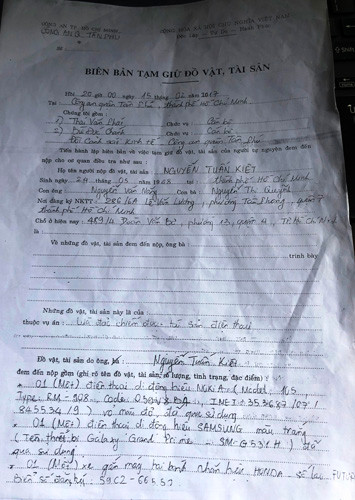 CÔNG AN TP. HỒ CHÍ MINH
CÔNG AN Q. TÂN PHÚ
CỘNG HÒA XÃ HỘI CHỦ NGHĨA VIỆT NAM
Độc lập - Tự do - Hạnh Phúc
Số:
BIÊN BẢN TẠM GIỮ ĐỒ VẬT, TÀI SẢN
Hồi 20 giờ 00 ngày 15 tháng 02 năm 2017
Tại Công an quận Tân Phú, thành phố Hồ Chí Minh
Chúng tôi gồm:
1) Thái Văn Phái Chức vụ: Cán bộ
2) Chức vụ: Cán bộ
Đội Cảnh sát KINH TẾ Công an quận Tân Phú
Tiến hành lập biên bản về việc tạm giữ đồ vật, tài sản của người tự nguyện đem đến
nộp cho cơ quan điều tra như sau:
Họ tên người nộp đồ vật, tài sản: NGUYỄN TUẤN KIỆT
Sinh ngày 24 tháng 03 năm tại thành phố Hồ Chí Minh
Con ông: Nguyễn Văn Nông Con bà: Nguyễn Thị Quỳnh
Nơi đăng ký NKTT: 286/6A Lê Văn Lương, phường Tân Phong, quận 7
thành phố Hồ Chí Minh
Chỗ ở hiện nay: 489/4 Đoàn Văn Bơ, phường 13, quận 4, TP. Hồ Chí Minh
là
Về những đồ vật, tài sản đem đến nộp, ông bà:
trình bày
Những đồ vật, tài sản này là của
thuộc vụ án: Lừa đảo chiếm đoạt tài sản điện thoại
Đồ vật, tài sản do ông, bà: Nguyễn Tuấn Kiệt
đem đến nộp gồm (ghi rõ tên đồ vật, tài sản, số lượng, tình trạng, đặc điểm)
- 01 (Một) điện thoại di động hiệu NOKIA (Model: 105
Type: RM-908, Code:
vỏ màu đỏ, đã qua sử dụng
- 01 (Một) điện thoại di động hiệu SAMSUNG màu trắng
(Tên thiết bị Galaxy Grand Prime SM-G531H) đã
qua sử dụng
- 01 (Một) xe gắn máy hai bánh nhãn hiệu HONDA số loại FUTURE
Biển số đăng ký 59C2-665.57